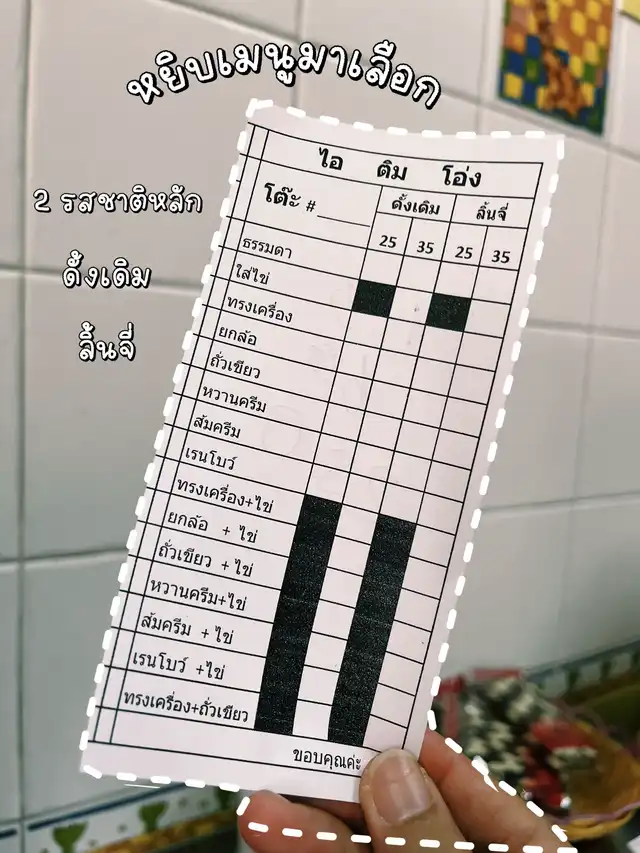 หยิบเมนูมาเลือก
2 รสชาติหลัก
ดั้งเดิม
ลิ้นจี่
ไอ ติม โอ่ง
โต๊ะ #____ ดั้งเดิม ลิ้นจี่
25 35 25 35
ธรรมดา
ใส่ไข่
ทรงเครื่อง
ยกล้อ
ถั่วเขียว
หวานครีม
ส้มครีม
เรนโบว์
ทรงเครื่อง+ไข่
ยกล้อ + ไข่
ถั่วเขียว + ไข่
หวานครีม+ไข่
ส้มครีม + ไข่
เรนโบว์ +ไข่
ทรงเครื่อง+ถั่วเขียว
ขอบคุณค่ะ